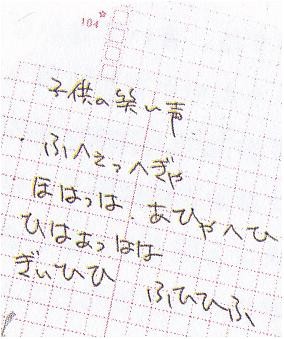 104
子供の笑い声
・ふへえっへぎゃ
ほはっは・あひゃへひ
ひはあっはは
ぎいひひ ふひひふ